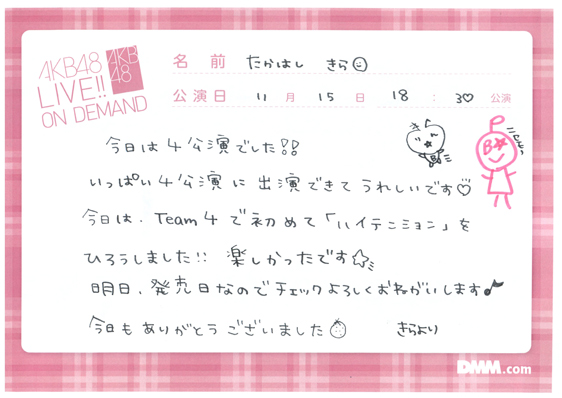 AKB48
LIVE!!
ON DEMAND
AKB
48
名前 たかはし きら
公演日 11月15日 18:30公演
今日は4公演でした!!
いっぱい4公演に出演できてうれしいです♡
今日は、Team4で初めて「ハイテンション」を
ひろうしました!! 楽しかったです☆
明日、発売日なのでチェックよろしくおねがいします♪
今日もありがとうございました
きらより
B★
DMM.com